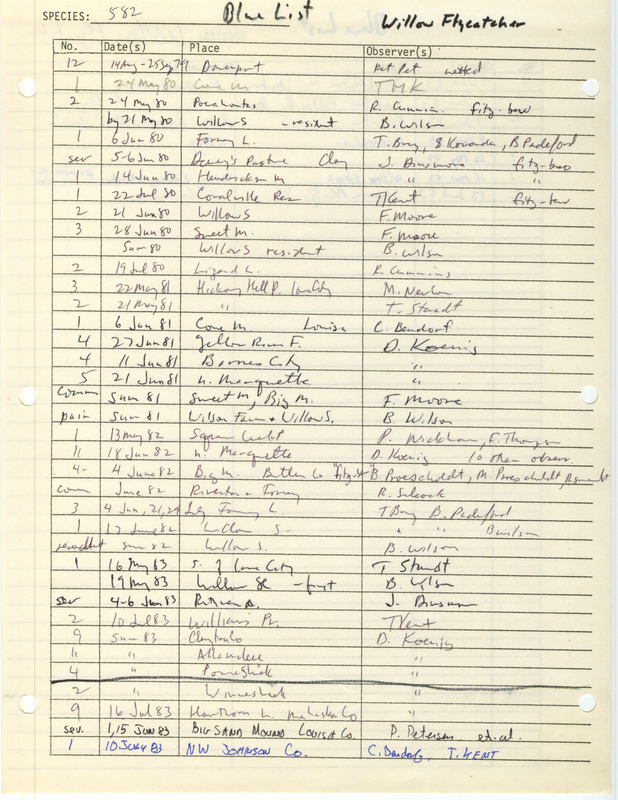 SPECIES: 582 Blue List Willow Flycatcher
No. Date(s) Place Observer(s)
12 14Aug-25Sep79 Davenport Pet Pet netted
1 24 May 80 Cone M. TMK
2 24 May 80 Pocahontas R. Cummins fitz-bew
by 21 May 80 Willow S - resident B. Wilson
1 6 Jun 80 Forney L. T. Bray, B. Padelford
sev 5-6 Jun 80 Dewey's Pasture Clay J. Dinsmore fitz-bew
1 14 Jun 80 Hendrickson M " "
1 22 Jul 80 Coralville Res TKent fitz-bew
2 21 Jun 80 Willow S F. Moore
3 28 Jun 80 Sweet M. F. Moore
Sum 80 Willow S resident B. Wilson
2 19 Jul 80 Lizard L. R. Cummins
3 22 May 81 Hickory Hill P. Iowa City M. Newlon
2 21 May 81 " T. Staudt
1 6 Jun 81 Cone M. Louisa C. Bendorf
4 27 Jun 81 Yellow River F. D. Koenig
4 11 Jun 81 Barnes City "
5 21 Jun 81 n. Marquette "
Comm Sum 81 Sweet M, Big M. F. Moore
pair Sum 81 Wilson Farm + Willow S. B. Wilson
1 13 May 82 P. Wickham, F. Thompson
11 18 Jun 82 n. Marquette D. Koenig 10 other observ.
4 4 June 82 Big M. Butler Co "fitz-b" B. Proescholdt, M. Proescholdt,
comm June 82 Riverton + Forney R. Silcock
3 4 Jun, 21,29 Forney L. T Bray B. Padelford
1 17 June 82 Willow S. " " B Wilson
sum 82 Willow S. B. Wilson
1 16 May 83 S. of Iowa City T Staudt
19 May 83 Willow Sl - first B. Wilson
sev 4-6 Jun 83 Ruthven A. J. Dinsmore
2 10 Jul 83 Williams Pr. TKent
9 Sum 83 Clayton Co D. Koenig
" " Allamakee "
4 " Poweshiek "
2 " Winneshiek "
9 16 Jul 83 Hawthorn L. Mahaska Co "
sev. 1,15 JUN 83 BIG SAND MOUND LOUISA Co. P. Petersen, et. al.
1 10 JULY 83 NW JOHNSON Co. C. Bendorf, T. KENT